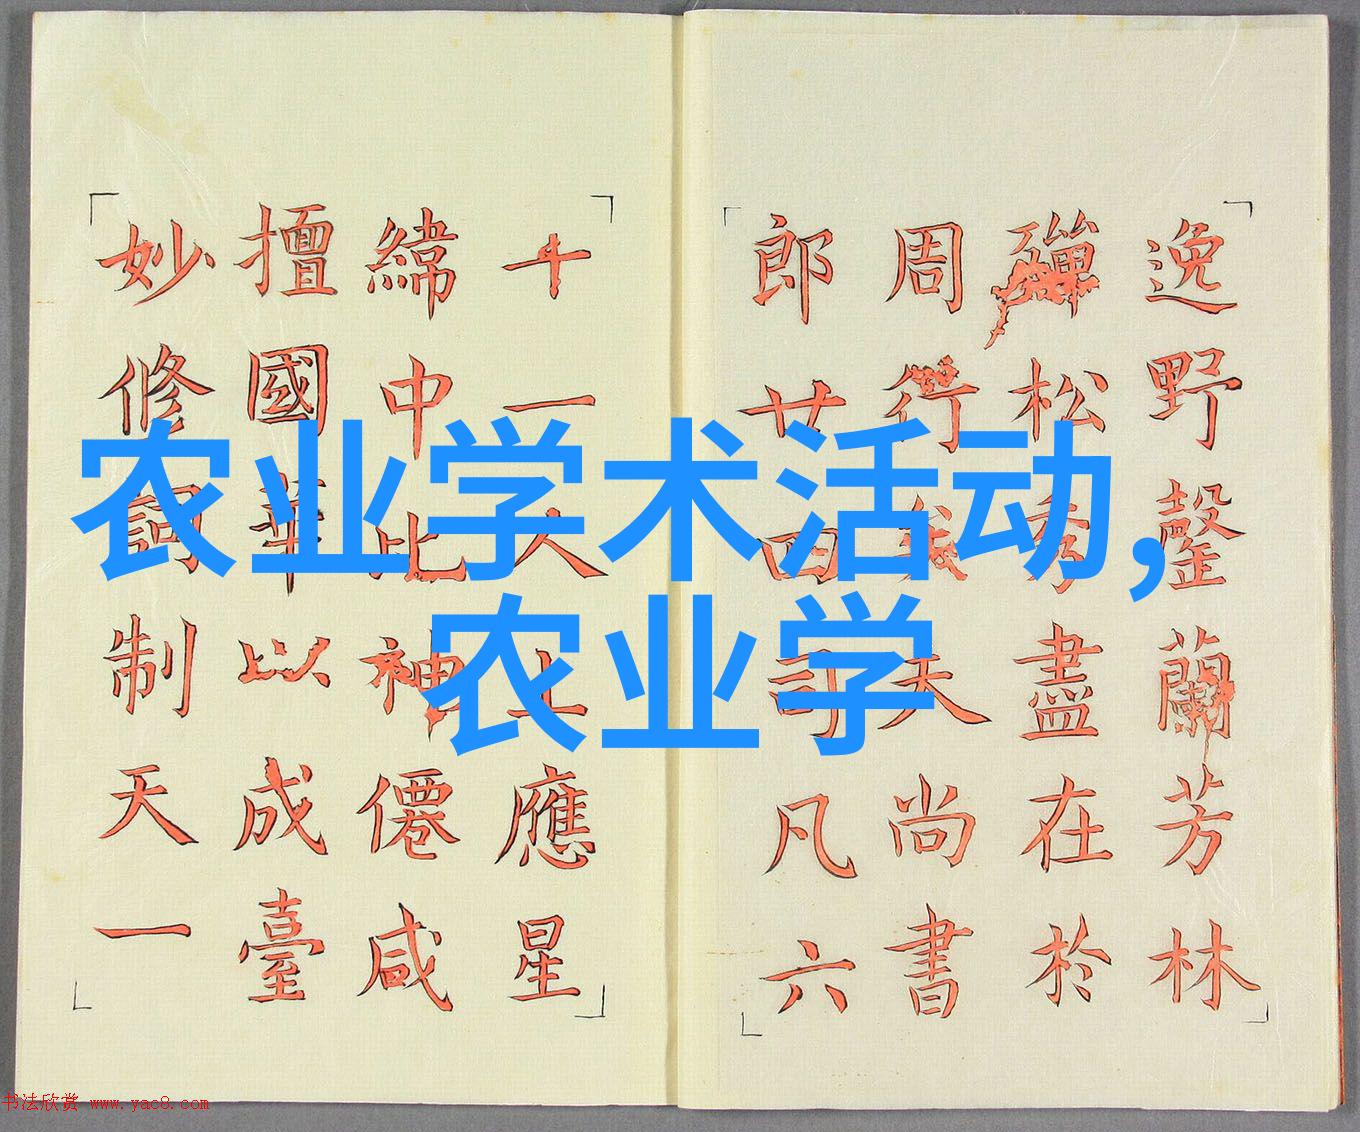 农业学术活动,
农业学
逸野罄蘭芳林
殫松秀盡在於
周行矣夫尚書
郎廿四司凡六
十一人上應星
緯中比神僊咸
擅國華以成臺
妙修詞制天一
书法欣赏 www.yac8.com